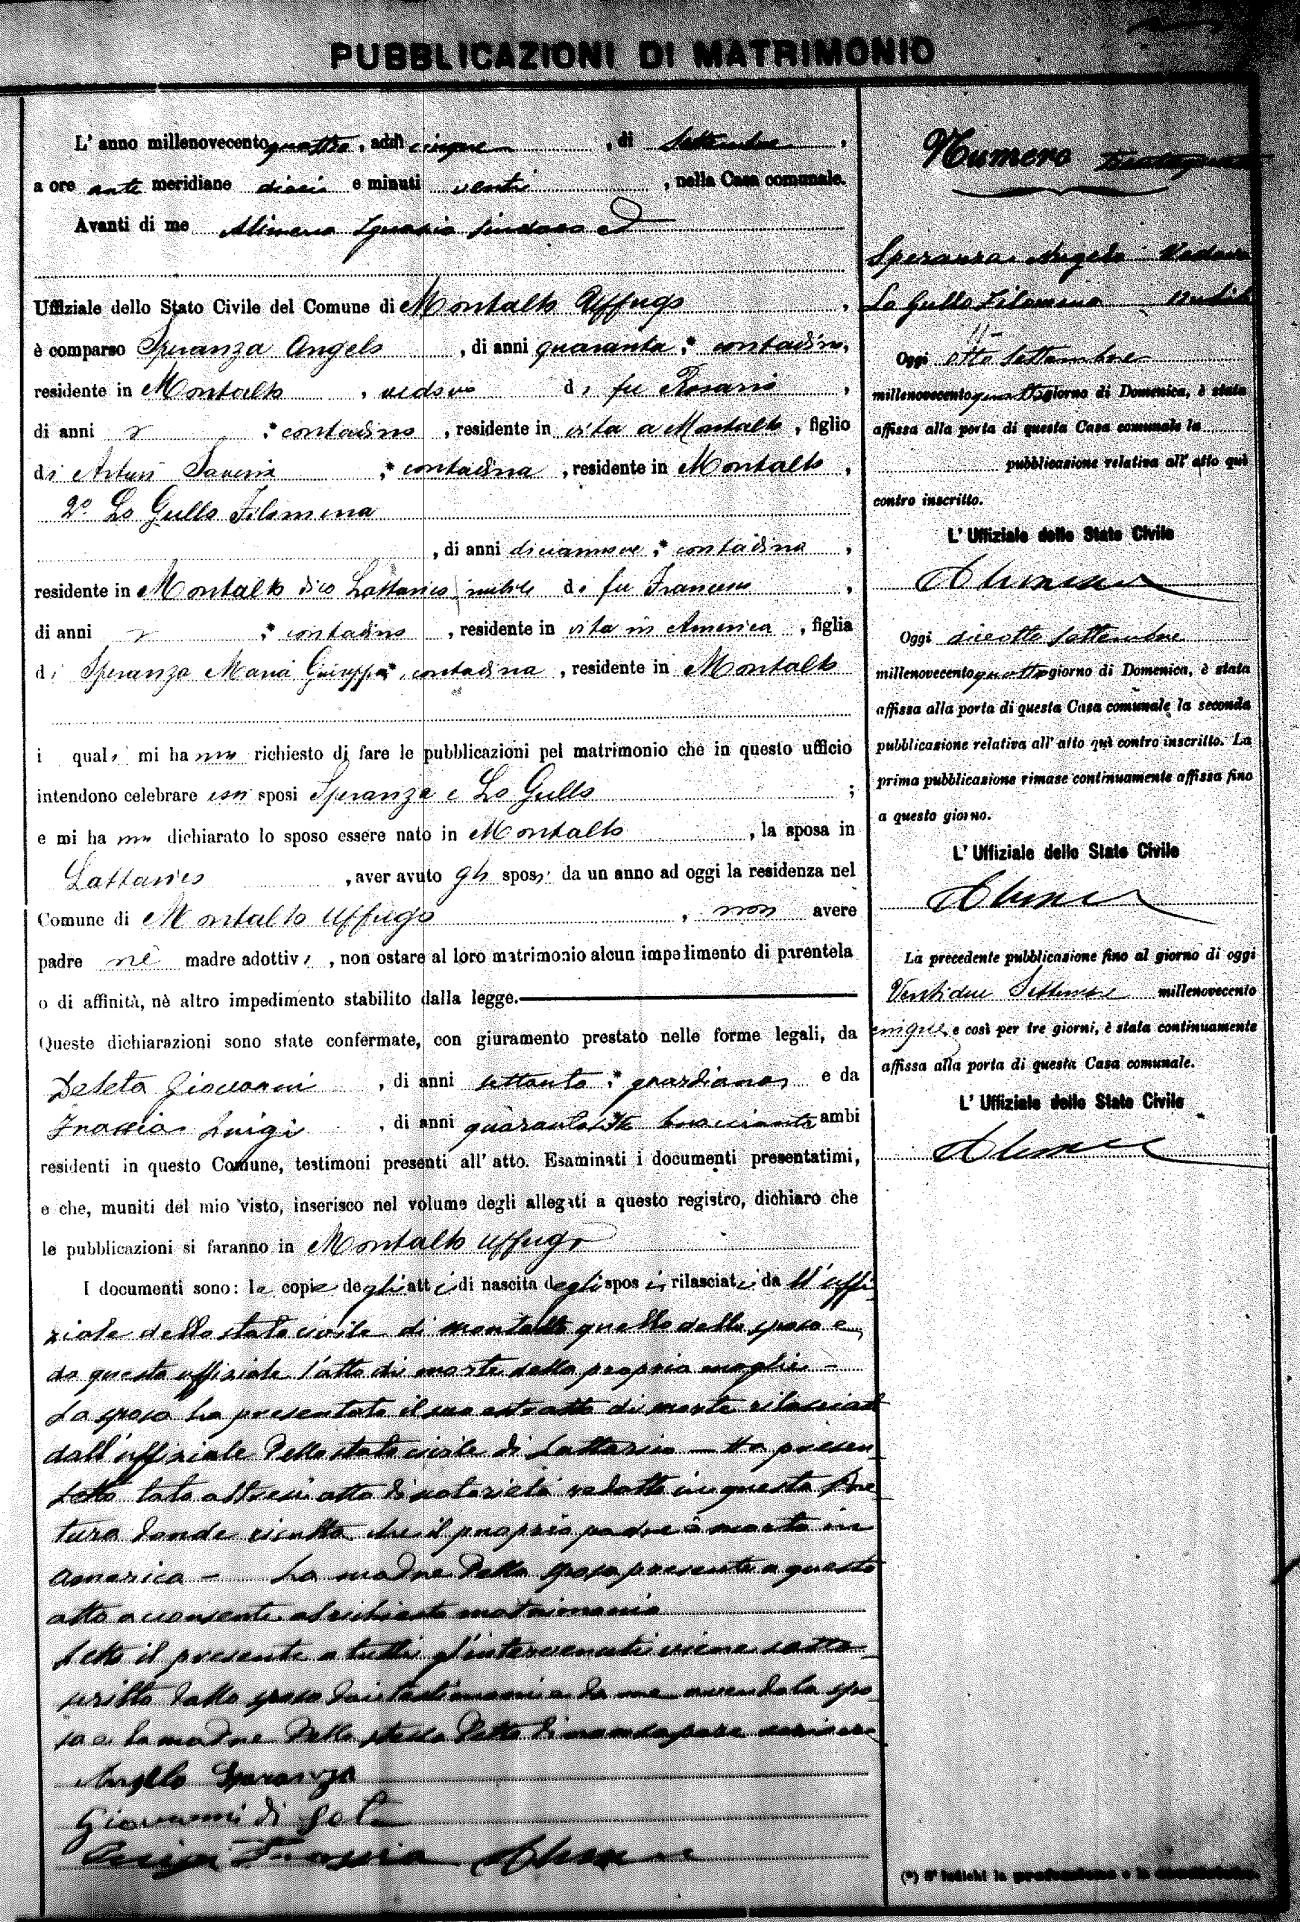 PUBBLICAZIONI DI MATRIMONIO
L' anno millenovecento quattro, addì cinque, di Settembre,
a ore ante meridiane dieci e minuti venti, nella Casa comunale.
Avanti di me Alimena Ignazio Sindaco ed
Uffiziale dello Stato Civile del Comune di Montalto Uffugo,
è comparso Speranza Angelo, di anni quaranta, * contadino,
residente in Montalto, vedovo di fu Rosario,
di anni, * contadino, residente in vita a Montalto, figlio
di Arturi Saveria, * contadina, residente in Montalto,
2° Lo Gullo Filomena
, di anni diciannove, * contadina,
residente in Montalto Lattarico, nubile di fu Francesco,
di anni, * contadino, residente in vita in America, figlia
di Speranza Maria Giuseppa * contadina, residente in Montalto
i quali mi hanno richiesto di fare le pubblicazioni pel matrimonio che in questo ufficio
intendono celebrare essi sposi Speranza e Lo Gullo;
e mi hanno dichiarato lo sposo essere nato in Montalto, la sposa in
Lattarico, aver avuto gli sposi da un anno ad oggi la residenza nel
Comune di Montalto Uffugo, non avere
padre nè madre adottivi, non ostare al loro matrimonio alcun impedimento di parentela
o di affinità, nè altro impedimento stabilito dalla legge.
Queste dichiarazioni sono state confermate, con giuramento prestato nelle forme legali, da
Deseta Giovanni, di anni settanta, * guardiano, e da
Frassia Luigi, di anni quarantotto bracciante ambi
residenti in questo Comune, testimoni presenti all' atto. Esaminati i documenti presentatimi,
e che, muniti del mio visto, inserisco nel volume degli allegati a questo registro, dichiaro che
le pubblicazioni si faranno in Montalto Uffugo
I documenti sono: le copie degli atti di nascita degli sposi, rilasciati da ll' uffi
ziale dello stato civile di Montalto quello dello sposo e
da questo uffiziale l'atto di morte della propria moglie –
La sposa ha presentato il suo estratto di morte rilasciato
dall'uffiziale dello stato civile di Lattarico – Ha presen
tato altresì atto di notorietà redatto in questa Pre
tura donde risulta che il proprio padre è morto in
America – La madre della sposa presente a questo
atto acconsente al richiesto matrimonio
Letto il presente a tutti gl'intervenuti viene sotto
scritto dallo sposo dai testimoni e da me avendo la spo
sa e la madre della stessa detto di non sapere scrivere
Angelo Speranza
Giovanni di Seta
Luigi Frassia Alimena
Numero
Speranza Angelo Vedovo
Lo Gullo Filomena Nubile
Oggi otto Settembre
millenovecento quattro giorno di Domenica, è stata
affissa alla porta di questa Casa comunale la
pubblicazione relativa all' atto quì
contro inscritto.
L' Uffiziale dello Stato Civile
Alimena
Oggi diciotto Settembre
millenovecento quattro giorno di Domenica, è stata
affissa alla porta di questa Casa comunale la seconda
pubblicazione relativa all' atto quì contro inscritto. La
prima pubblicazione rimase continuamente affissa fino
a questo giorno.
L' Uffiziale dello Stato Civile
Alimena
La precedente pubblicazione fino al giorno di oggi
Ventidue Settembre millenovecento
cinque, e così per tre giorni, è stata continuamente
affissa alla porta di questa Casa comunale.
L' Uffiziale dello Stato Civile
Alimena
(*) S' indichi la professione o la condizione.